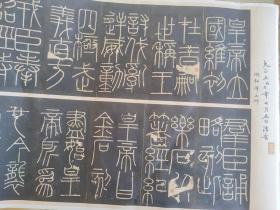 皇帝立
國維初
在昔嗣
世稱王
討伐亂
逆威動
四極武
義直方
戎臣奉
羣臣誦
略刻此
樂石以
著經紀
皇帝曰
金石刻
盡始皇
帝所為
也今襲